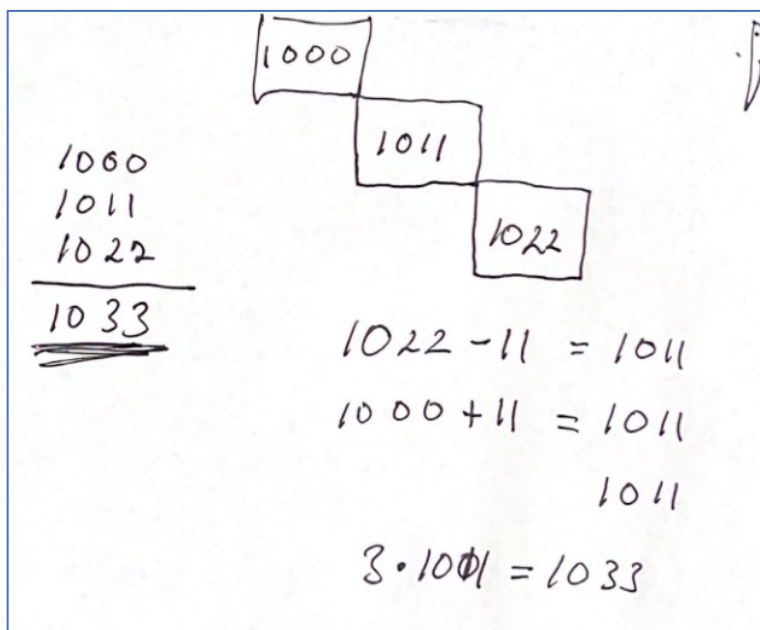 1000
1011
1022
1000
1011
1022
1033
1022 - 11 = 1011
1000 + 11 = 1011
1011
3 · 1011 = 1033